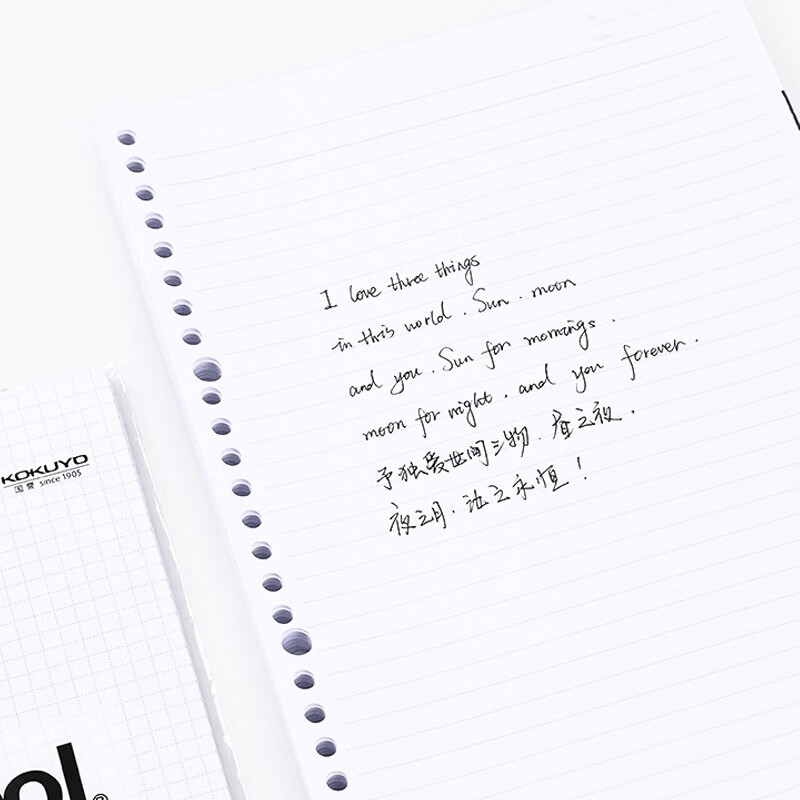 I love three things
in this world . Sun . moon
and you . Sun for mornings .
moon for night . and you forever .
予独爱世间三物 . 昼之夜 .
夜之月 . 汝之永恒 !
KOKUYO
国誉 since 1905
ol®